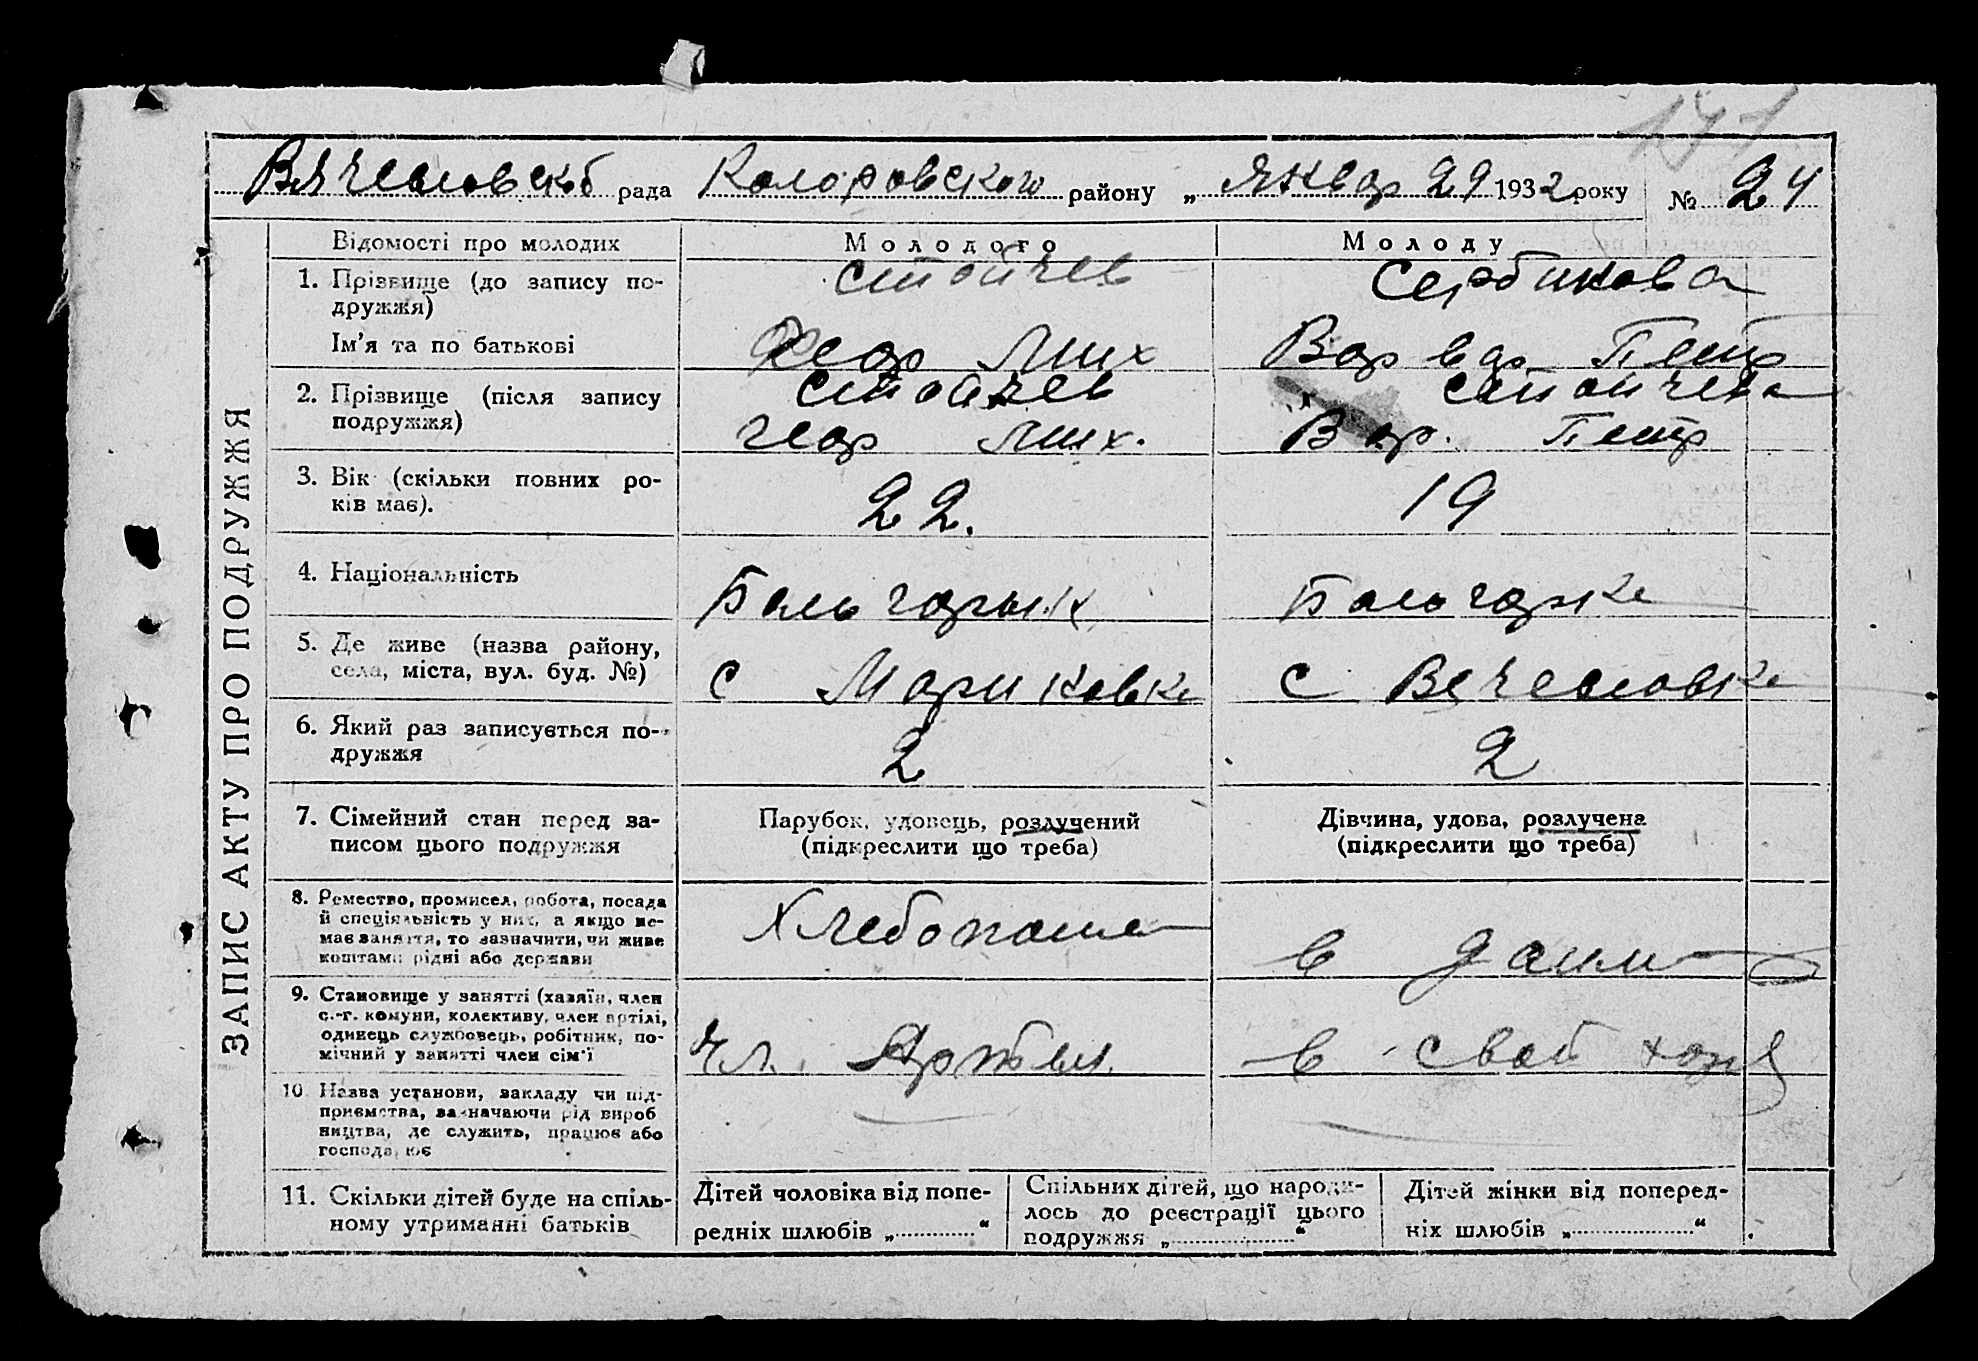 171
Вячесловской рада Коларовского району „ Январ 29 1932 року № 24
ЗАПИС АКТУ ПРО ПОДРУЖЖЯ
Відомості про молодих
Молодого
Молоду
1. Прізвище (до запису по-
дружжя)
Стойчев
Сербинова
Ім'я та по батькові
Геор Мих
Вар вар Петр
2. Прізвище (після запису
подружжя)
Стойчев
Геор Мих.
Стойчева
Вар. Петр
3. Вік (скільки повних ро-
ків має).
22.
19
4. Національність
Больгарын
Больгарке
5. Де живе (назва району,
села, міста, вул. буд. №)
с Мариновке
с Вечесловке
6. Який раз записується по-
дружжя
2
2
7. Сімейний стан перед за-
писом цього подружжя
Парубок, удовець, розлучений
(підкреслити що треба)
Дівчина, удова, розлучена
(підкреслити що треба)
8. Ремество, промисел, робота, посада
й спеціяльність у них, а якщо не-
має заняття, то зазначити, чи живе
коштами рідні або держави
Хлебопаше
в дами
9. Становище у занятті (хазяїн, член
с.-г. комуни, колективу, член артілі,
одинець службовець, робітник, по-
мічний у занятті член сім'ї
чл. Артели
в свой
10 Назва установи, закладу чи під-
приємства, зазначаючи рід вироб
ництва, де служить, працює або
господарює
11. Скільки дітей буде на спіль-
ному утриманні батьків
Дітей чоловіка від попе-
редніх шлюбів „ “
Спільних дітей, що народи-
лось до реєстрації цього
подружжя „ “
Дітей жінки від поперед-
ніх шлюбів „ “